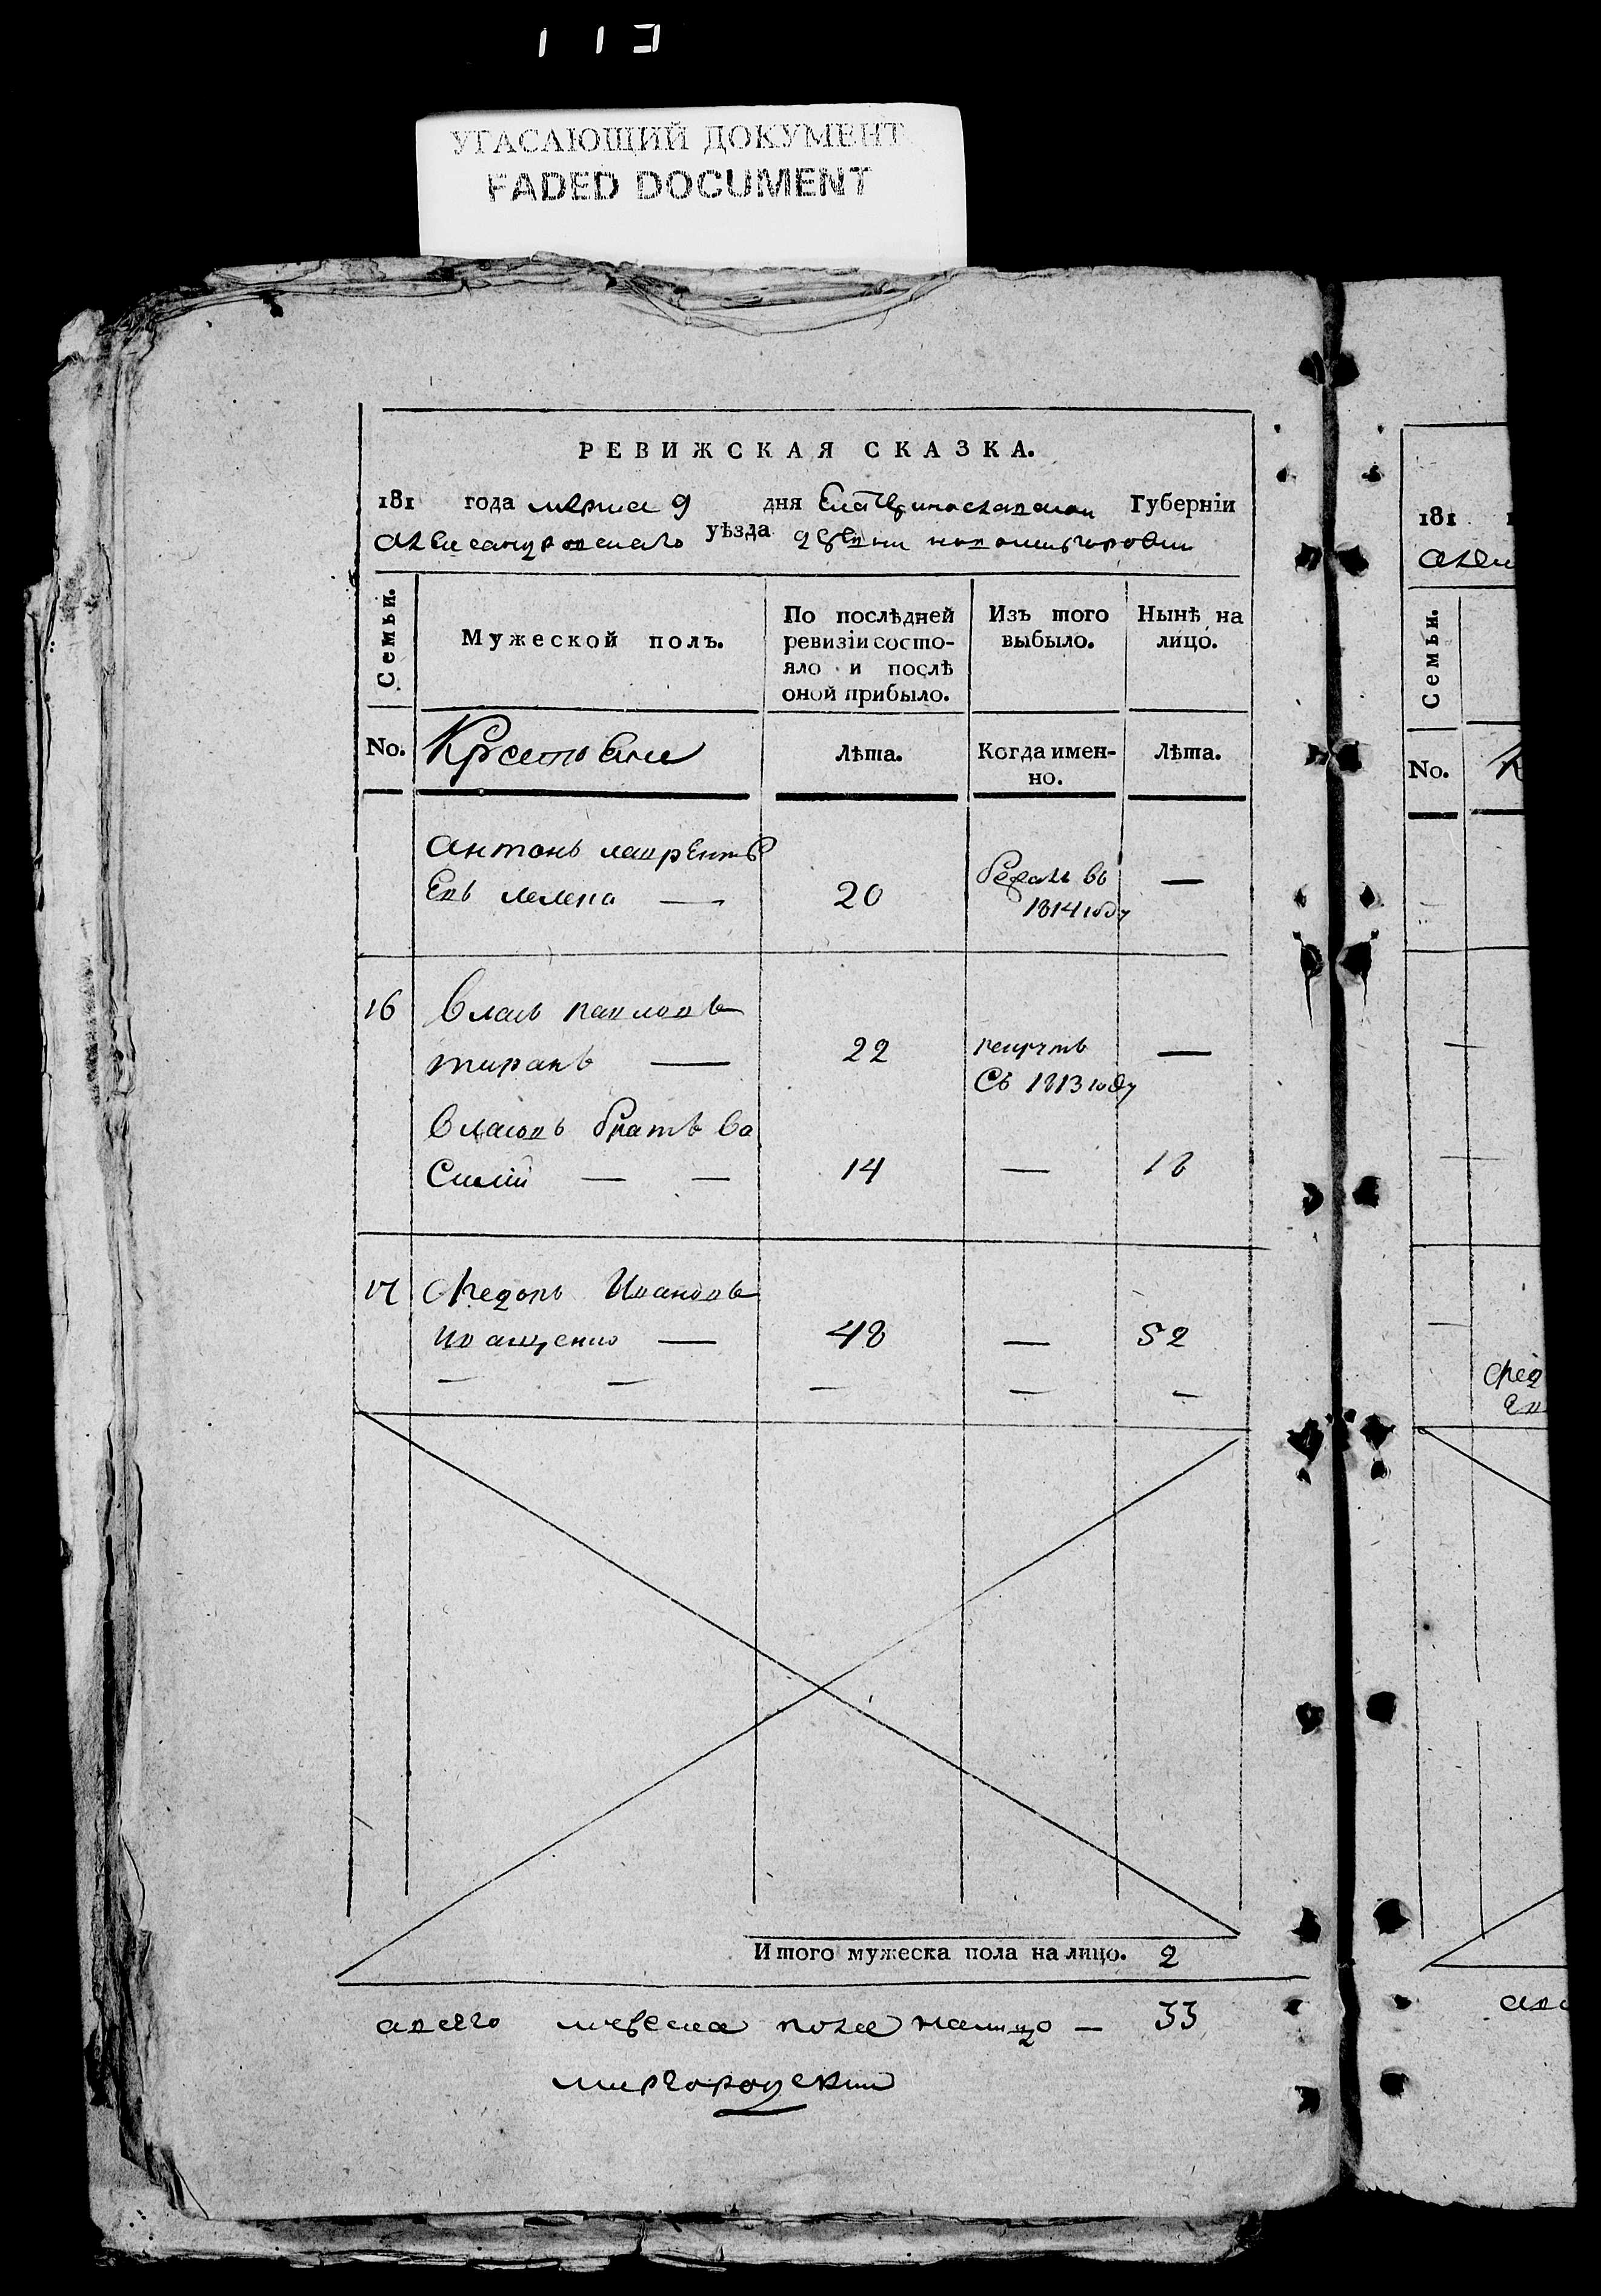 113
УГАСАЮЩИЙ ДОКУМЕНТ
FADED DOCUMENT
РЕВИЖСКАЯ СКАЗКА.
181 года марта 9 дня Екатеринославской Губерніи
александровскаго уѣзда деревни новомиргородки
Семьи.
Мужеской полъ.
По послѣдней ревизіи состо-
яло и послѣ
оной прибыло.
Изъ того
выбыло.
Нынѣ на
лицо.
No.
Крестьяне
лѣта.
Когда имен-
но.
лѣта.
антонъ лаврентъ
евъ 20 бежалъ въ —
1814 году
16 Власъ павловъ
22 —
съ 1813 году
власовъ братъ ва
силій — — 14 — 18
17 Федоръ Ивановъ
иващенко — 48 — 52
— — — — —
Итого мужеска пола на лицо. 2
авсего мужеска пола налицо — 33
миргородский
181
алек
Семьи.
No.
К
Фед